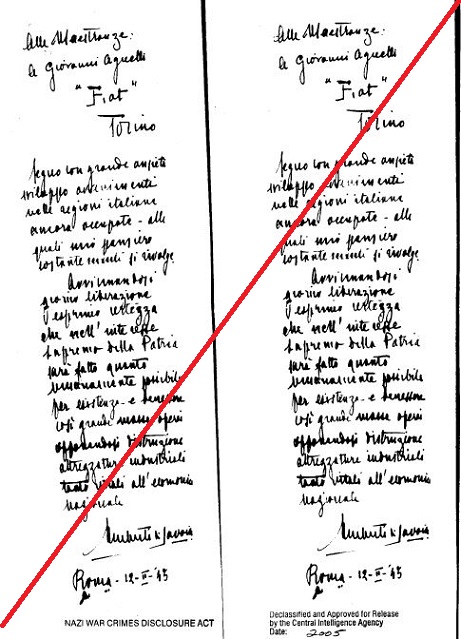 Alle Maestranze:
e Giovanni Agnelli
"Fiat"
Torino
Seguo con grande ansietà
sviluppo avvenimenti
nelle regioni italiane
ancora occupate - alle
quali mio pensiero
costantemente si rivolge
Avvicinandosi
giorno liberazione
esprimo certezza
che nell'interesse
supremo della Patria
sarà fatto quanto
umanamente possibile
per esistenza e benessere
così grandi masse operaie
opponendosi distruzione
attrezzature industriali
tanto vitali all'economia
nazionale
Umberto di Savoia
Roma - 12-II-'45
NAZI WAR CRIMES DISCLOSURE ACT
Alle Maestranze:
e Giovanni Agnelli
"Fiat"
Torino
Seguo con grande ansietà
sviluppo avvenimenti
nelle regioni italiane
ancora occupate - alle
quali mio pensiero
costantemente si rivolge
Avvicinandosi
giorno liberazione
esprimo certezza
che nell'interesse
supremo della Patria
sarà fatto quanto
umanamente possibile
per esistenza e benessere
così grandi masse operaie
opponendosi distruzione
attrezzature industriali
tanto vitali all'economia
nazionale
Umberto di Savoia
Roma - 12-II-'45
Declassified and Approved for Release
by the Central Intelligence Agency
Date: 2005